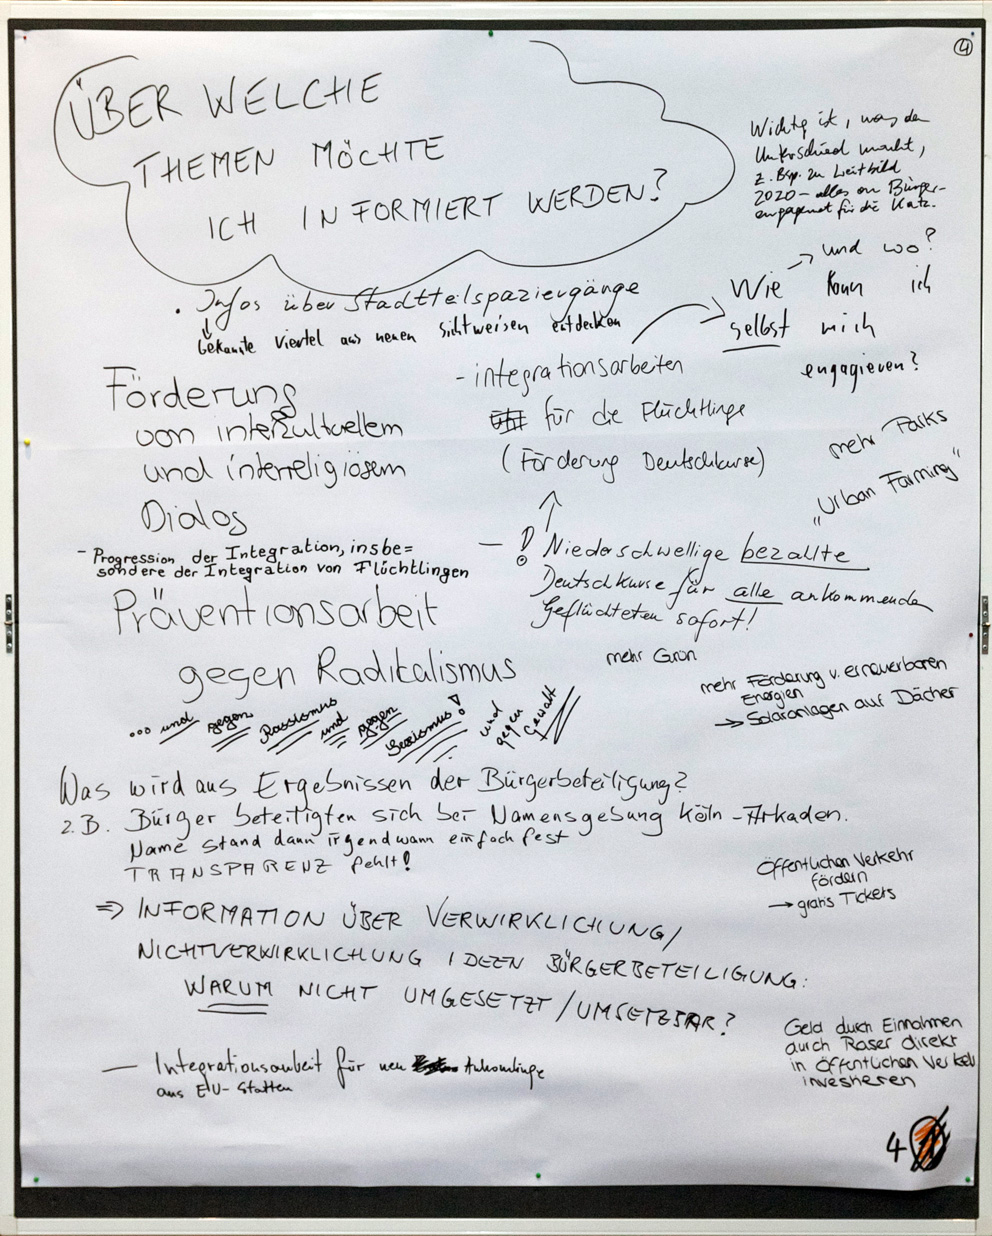 4
ÜBER WELCHE
THEMEN MÖCHTE
ICH INFORMIERT WERDEN?
Wichtig ist, was den
Unterschied macht,
z. Bsp. zu Leitbild
2020 - alles an Bürger-
engagement für die Katz.
• Infos über Stadtteilspaziergänge
↓ bekannte Viertel aus neuen Sichtweisen entdecken
→ und wo?
Wie kann ich
selbst mich
engagieren?
Förderung
von interkultuellem
und interreligiösem
Dialog
- Progression der Integration, insbe=
sondere der Integration von Flüchtlingen
- integrationsarbeiten
für die Flüchtlinge
(Förderung Deutschkurse)
mehr Parks
„Urban Farming"
— ! Niederschwellige bezahlte
Deutschkurse für alle ankommenden
Geflüchteten sofort!
Präventionsarbeit
gegen Radikalismus
... und gegen Rassismus und gegen Sexismus! und gegen Gewalt
mehr Grün
mehr Förderung v. erneuerbaren
Energien
→ Solaranlagen auf Dächer
Was wird aus Ergebnissen der Bürgerbeteiligung?
z.B. Bürger beteiligten sich bei Namensgebung Köln-Arkaden.
Name stand dann irgendwann einfach fest
TRANSPARENZ fehlt!
Öffentlichen Verkehr
fördern
→ gratis Tickets
⇒ INFORMATION ÜBER VERWIRKLICHUNG/
NICHTVERWIRKLICHUNG IDEEN BÜRGERBETEILIGUNG:
WARUM NICHT UMGESETZT/UMSETZBAR?
— Integrationsarbeit für neu Ankomlinge
aus EU-Statten
Geld durch Einnahmen
durch Raser direkt
in Öffentlichen Verkehr
investieren
4